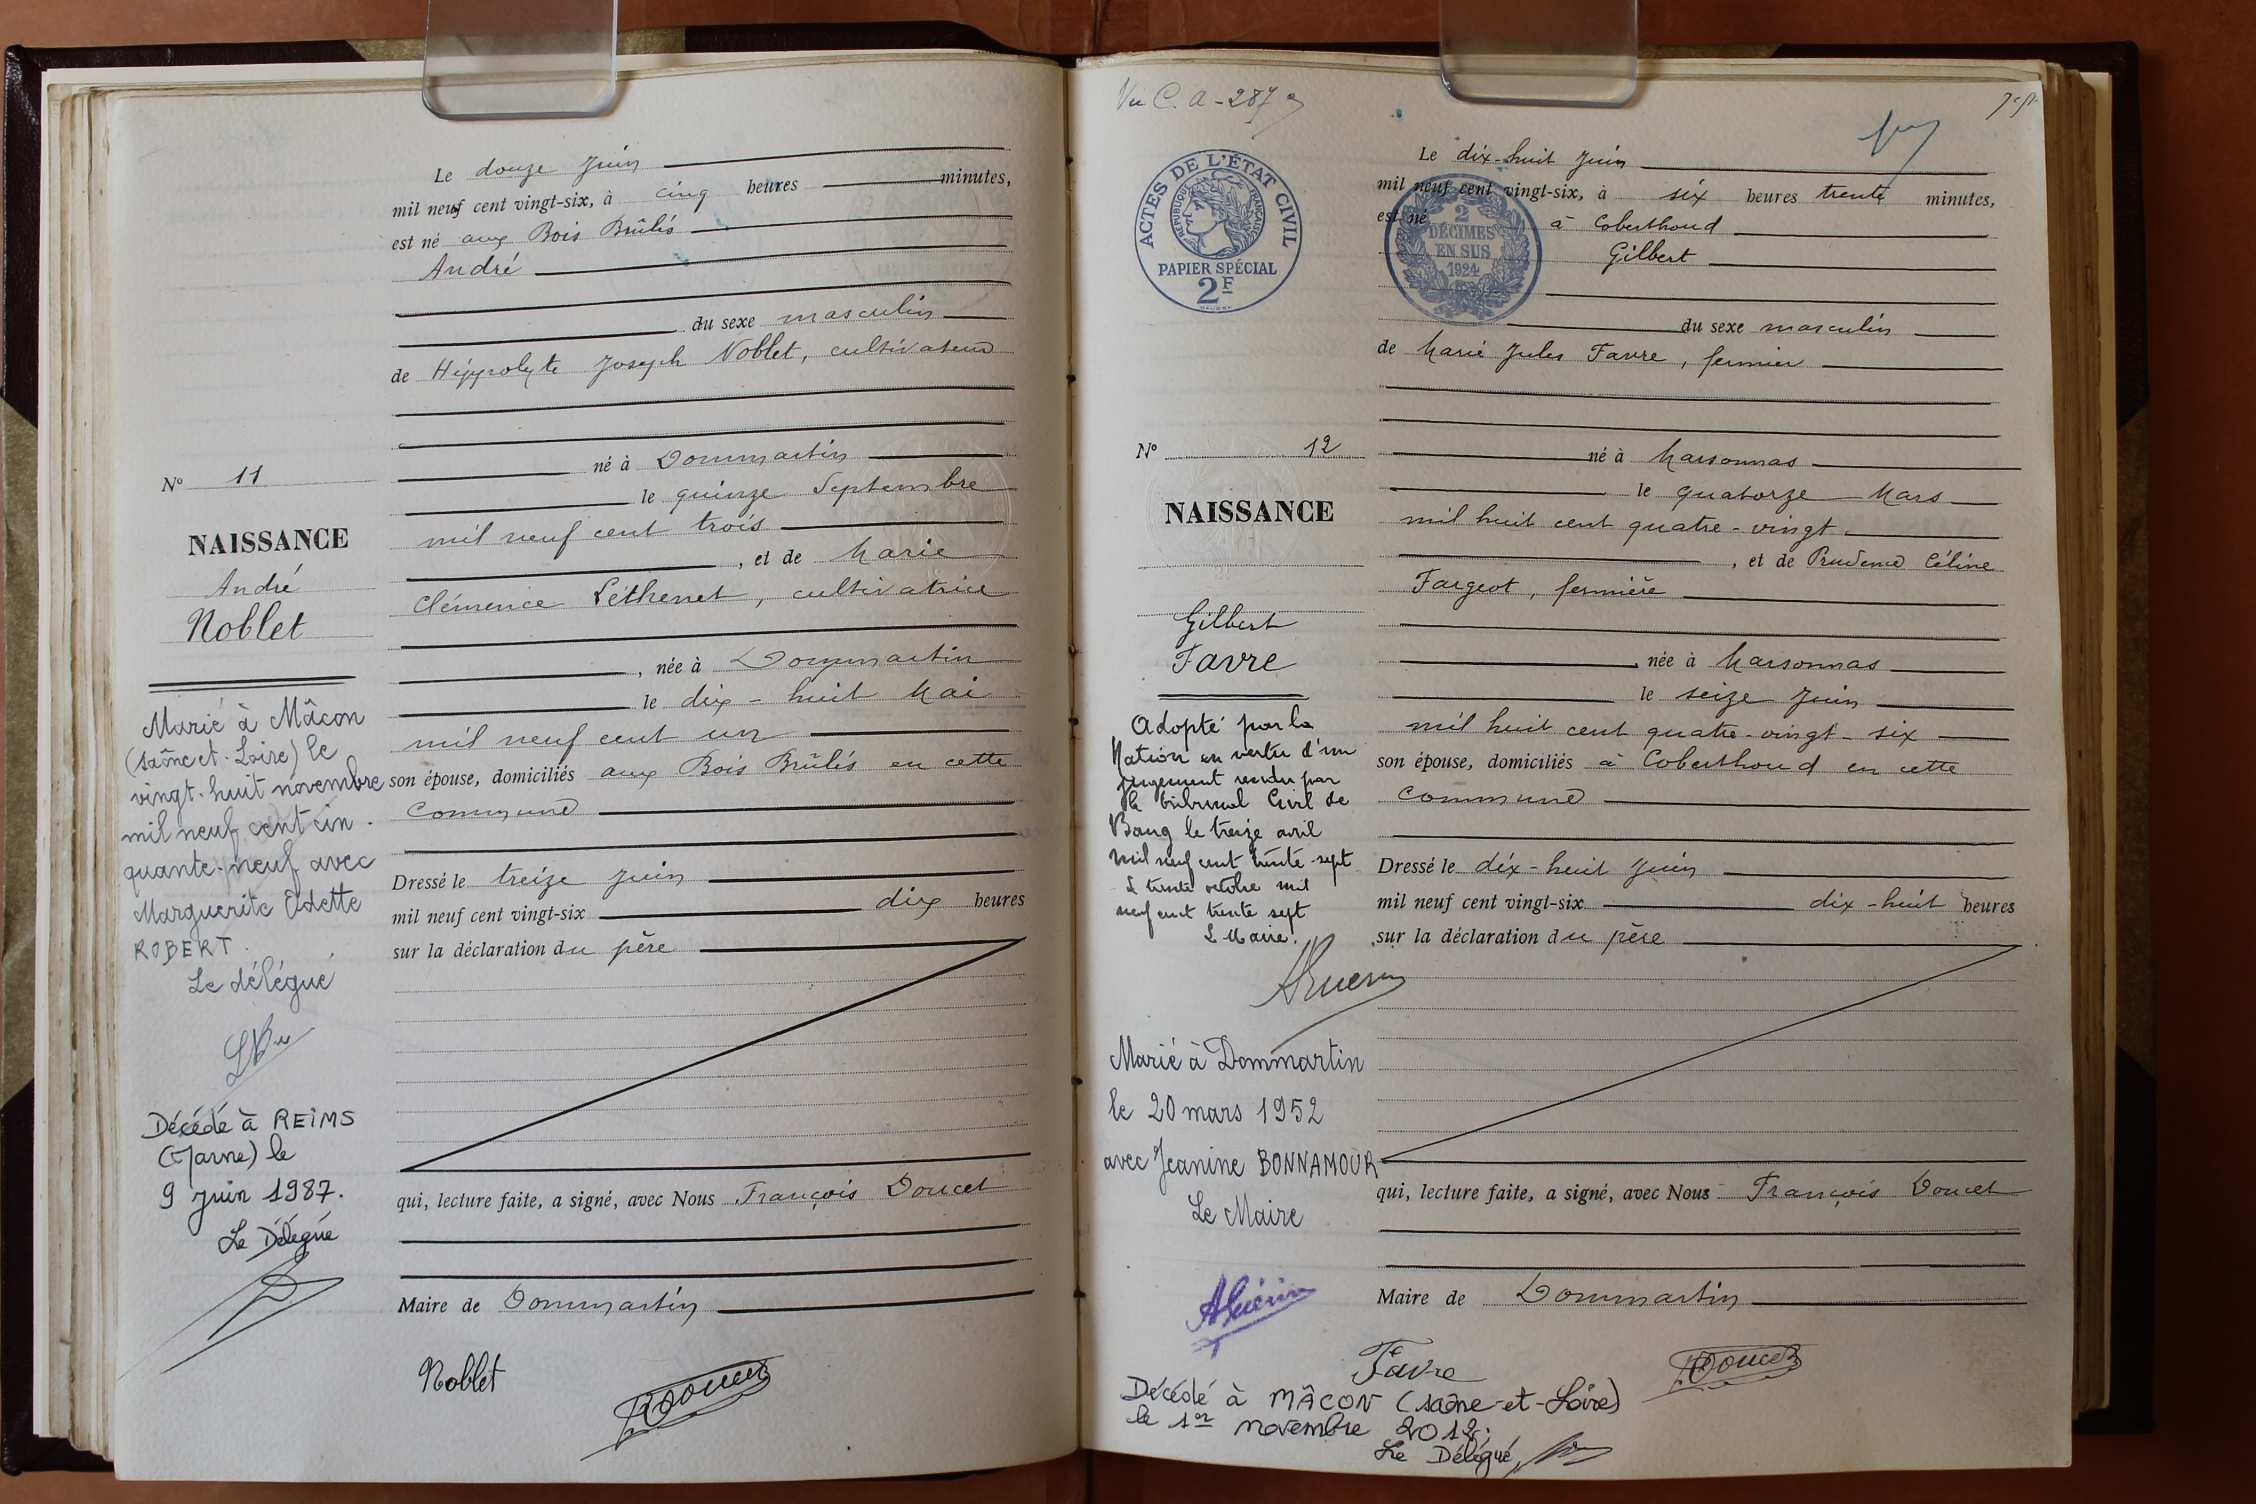 Le douze Juin
mil neuf cent vingt-six, à cinq heures minutes,
est né aux Bois Brûlés
André
du sexe masculin
de Hippolyte Joseph Noblet, cultivateur
né à Dommartin
le quinze Septembre
mil neuf cent trois
, et de Marie
Clémence Léthenet, cultivatrice
, née à Dommartin
le dix-huit Mai
mil neuf cent un
son épouse, domiciliés aux Bois Brûlés en cette
commune
Dressé le treize Juin
mil neuf cent vingt-six dix heures
sur la déclaration du père
qui, lecture faite, a signé, avec Nous François Doucet
Maire de Dommartin
Noblet
Doucet
N° 11
NAISSANCE
André
Noblet
Marié à Mâcon
(Saône et-Loire) le
vingt-huit novembre
mil neuf cent cin-
quante-neuf avec
Marguerite Odette
ROBERT.
Le délégué
Décédé à REIMS
(Marne) le
9 juin 1987.
Le Délégué
Vu C. A - 287
ACTES DE L'ÉTAT CIVIL
RÉPUBLIQUE FRANÇAISE
PAPIER SPÉCIAL
2F
2
DÉCIMES
EN SUS
1924
Le dix-huit Juin
mil neuf cent vingt-six, à six heures trente minutes,
est né à Coberthoud
Gilbert
du sexe masculin
de Marie Jules Favre, fermier
né à Marsonnas
le quatorze Mars
mil huit cent quatre-vingt
, et de Prudence Céline
Fargeot, fermière
, née à Marsonnas
le seize Juin
mil huit cent quatre-vingt-six
son épouse, domiciliés à Coberthoud en cette
commune
Dressé le dix-huit Juin
mil neuf cent vingt-six dix-huit heures
sur la déclaration du père
qui, lecture faite, a signé, avec Nous François Doucet
Maire de Dommartin
Favre
Doucet
N° 12
NAISSANCE
Gilbert
Favre
Adopté par la
Nation en vertu d'un
jugement rendu par
le tribunal Civil de
Bourg le treize avril
mil neuf cent trente-sept
Le trente octobre mil
neuf cent trente sept
Le Maire.
AGuérin
Marié à Dommartin
le 20 mars 1952
avec Jeanine BONNAMOUR
Le Maire
AGuérin
Décédé à MÂCON (Saône-et-Loire)
le 1er novembre 2012.
Le Délégué,